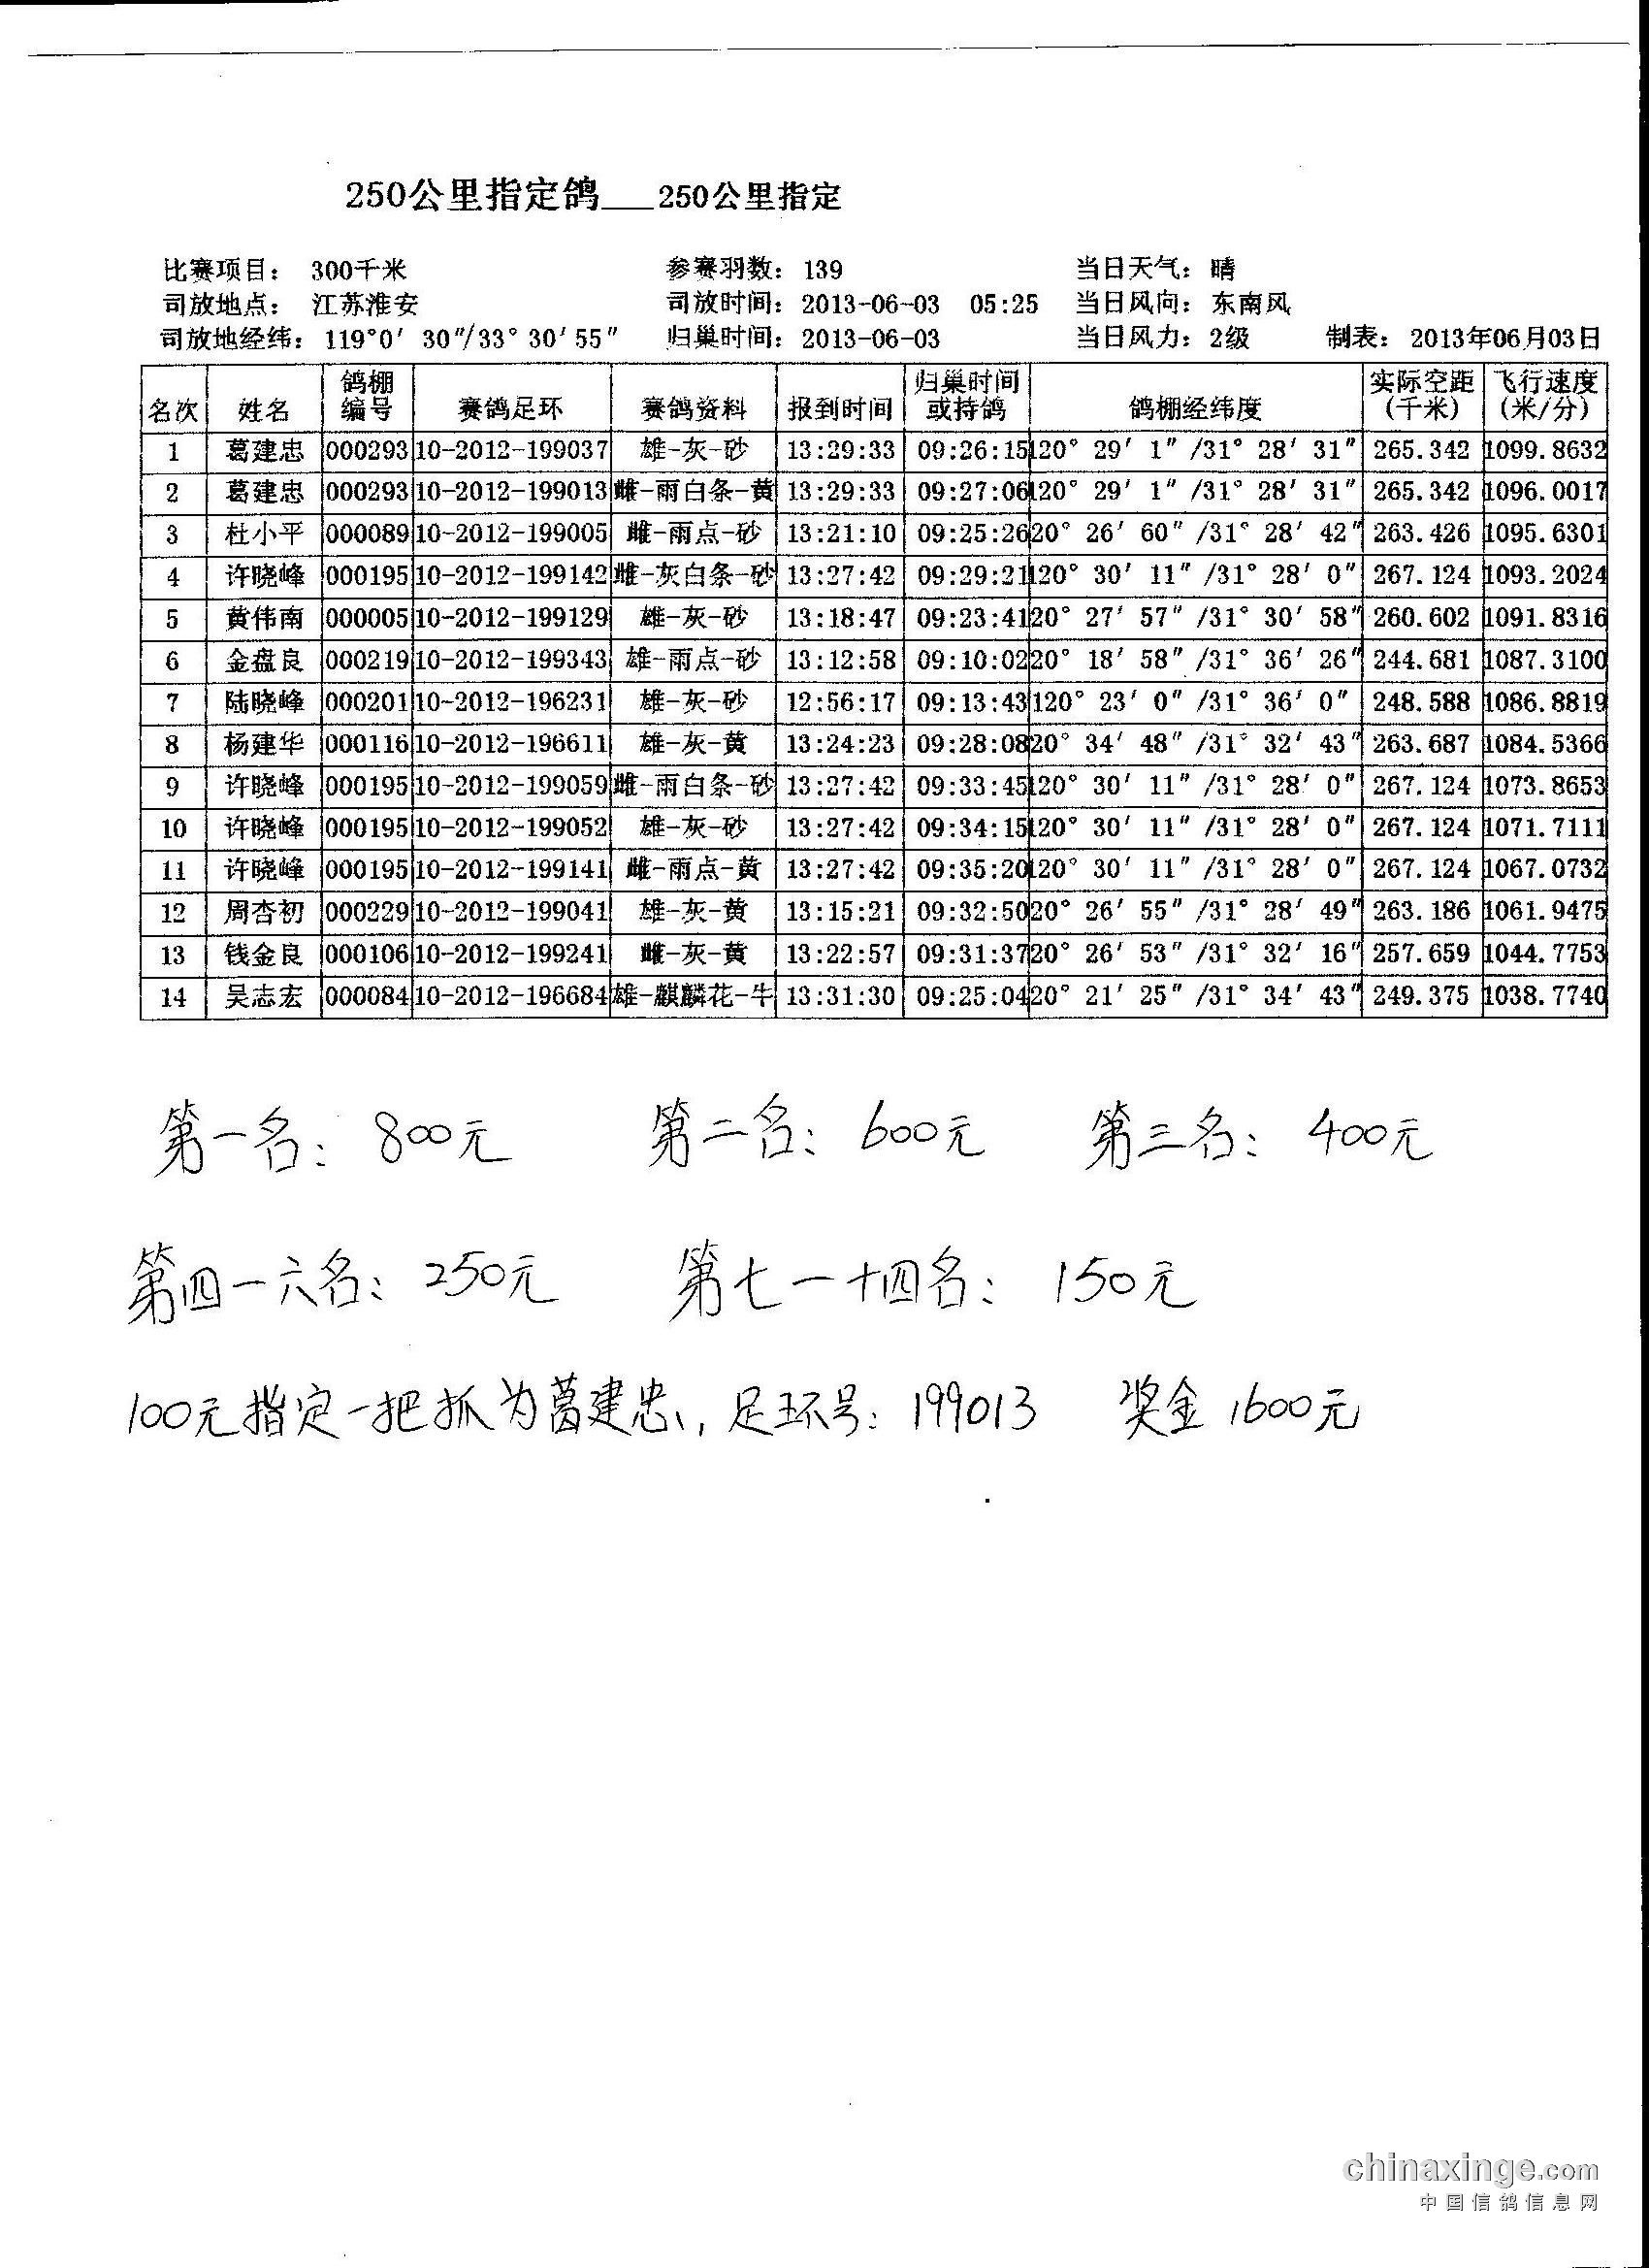 250公里指定鸽___250公里指定
比赛项目： 300千米 参赛羽数：139 当日天气：晴
司放地点： 江苏淮安 司放时间：2013-06-03 05:25 当日风向：东南风
司放地经纬：119°0′ 30″/33° 30′55″ 归巢时间：2013-06-03 当日风力：2级 制表：2013年06月03日
名次 姓名 鸽棚编号 赛鸽足环 赛鸽资料 报到时间 归巢时间或持鸽 鸽棚经纬度 实际空距（千米） 飞行速度（米/分）
1 葛建忠 000293 10-2012-199037 雄-灰-砂 13:29:33 09:26:15 120° 29′ 1″ /31° 28′ 31″ 265.342 1099.8632
2 葛建忠 000293 10-2012-199013 雌-雨白条-黄 13:29:33 09:27:06 120° 29′ 1″ /31° 28′ 31″ 265.342 1096.0017
3 杜小平 000089 10-2012-199005 雌-雨点-砂 13:21:10 09:25:26 20° 26′ 60″ /31° 28′ 42″ 263.426 1095.6301
4 许晓峰 000195 10-2012-199142 雌-灰白条-砂 13:27:42 09:29:21 120° 30′ 11″ /31° 28′ 0″ 267.124 1093.2024
5 黄伟南 000005 10-2012-199129 雄-灰-砂 13:18:47 09:23:41 20° 27′ 57″ /31° 30′ 58″ 260.602 1091.8316
6 金盘良 000219 10-2012-199343 雄-雨点-砂 13:12:58 09:10:02 20° 18′ 58″ /31° 36′ 26″ 244.681 1087.3100
7 陆晓峰 000201 10-2012-196231 雄-灰-砂 12:56:17 09:13:43 120° 23′ 0″ /31° 36′ 0″ 248.588 1086.8819
8 杨建华 000116 10-2012-196611 雄-灰-黄 13:24:23 09:28:08 20° 34′ 48″ /31° 32′ 43″ 263.687 1084.5366
9 许晓峰 000195 10-2012-199059 雌-雨白条-砂 13:27:42 09:33:45 120° 30′ 11″ /31° 28′ 0″ 267.124 1073.8653
10 许晓峰 000195 10-2012-199052 雄-灰-砂 13:27:42 09:34:15 120° 30′ 11″ /31° 28′ 0″ 267.124 1071.7111
11 许晓峰 000195 10-2012-199141 雌-雨点-黄 13:27:42 09:35:20 120° 30′ 11″ /31° 28′ 0″ 267.124 1067.0732
12 周杏初 000229 10-2012-199041 雄-灰-黄 13:15:21 09:32:50 20° 26′ 55″ /31° 28′ 49″ 263.186 1061.9475
13 钱金良 000106 10-2012-199241 雌-灰-黄 13:22:57 09:31:37 20° 26′ 53″ /31° 32′ 16″ 257.659 1044.7753
14 吴志宏 000084 10-2012-196684 雄-麒麟花-牛 13:31:30 09:25:04 20° 21′ 25″ /31° 34′ 43″ 249.375 1038.7740
第一名：800元 第二名：600元 第三名：400元
第四一六名：250元 第七一十四名：150元
100元指定一把抓为葛建忠，足环号：199013 奖金1600元
chinaxinge.com
中国信鸽信息网